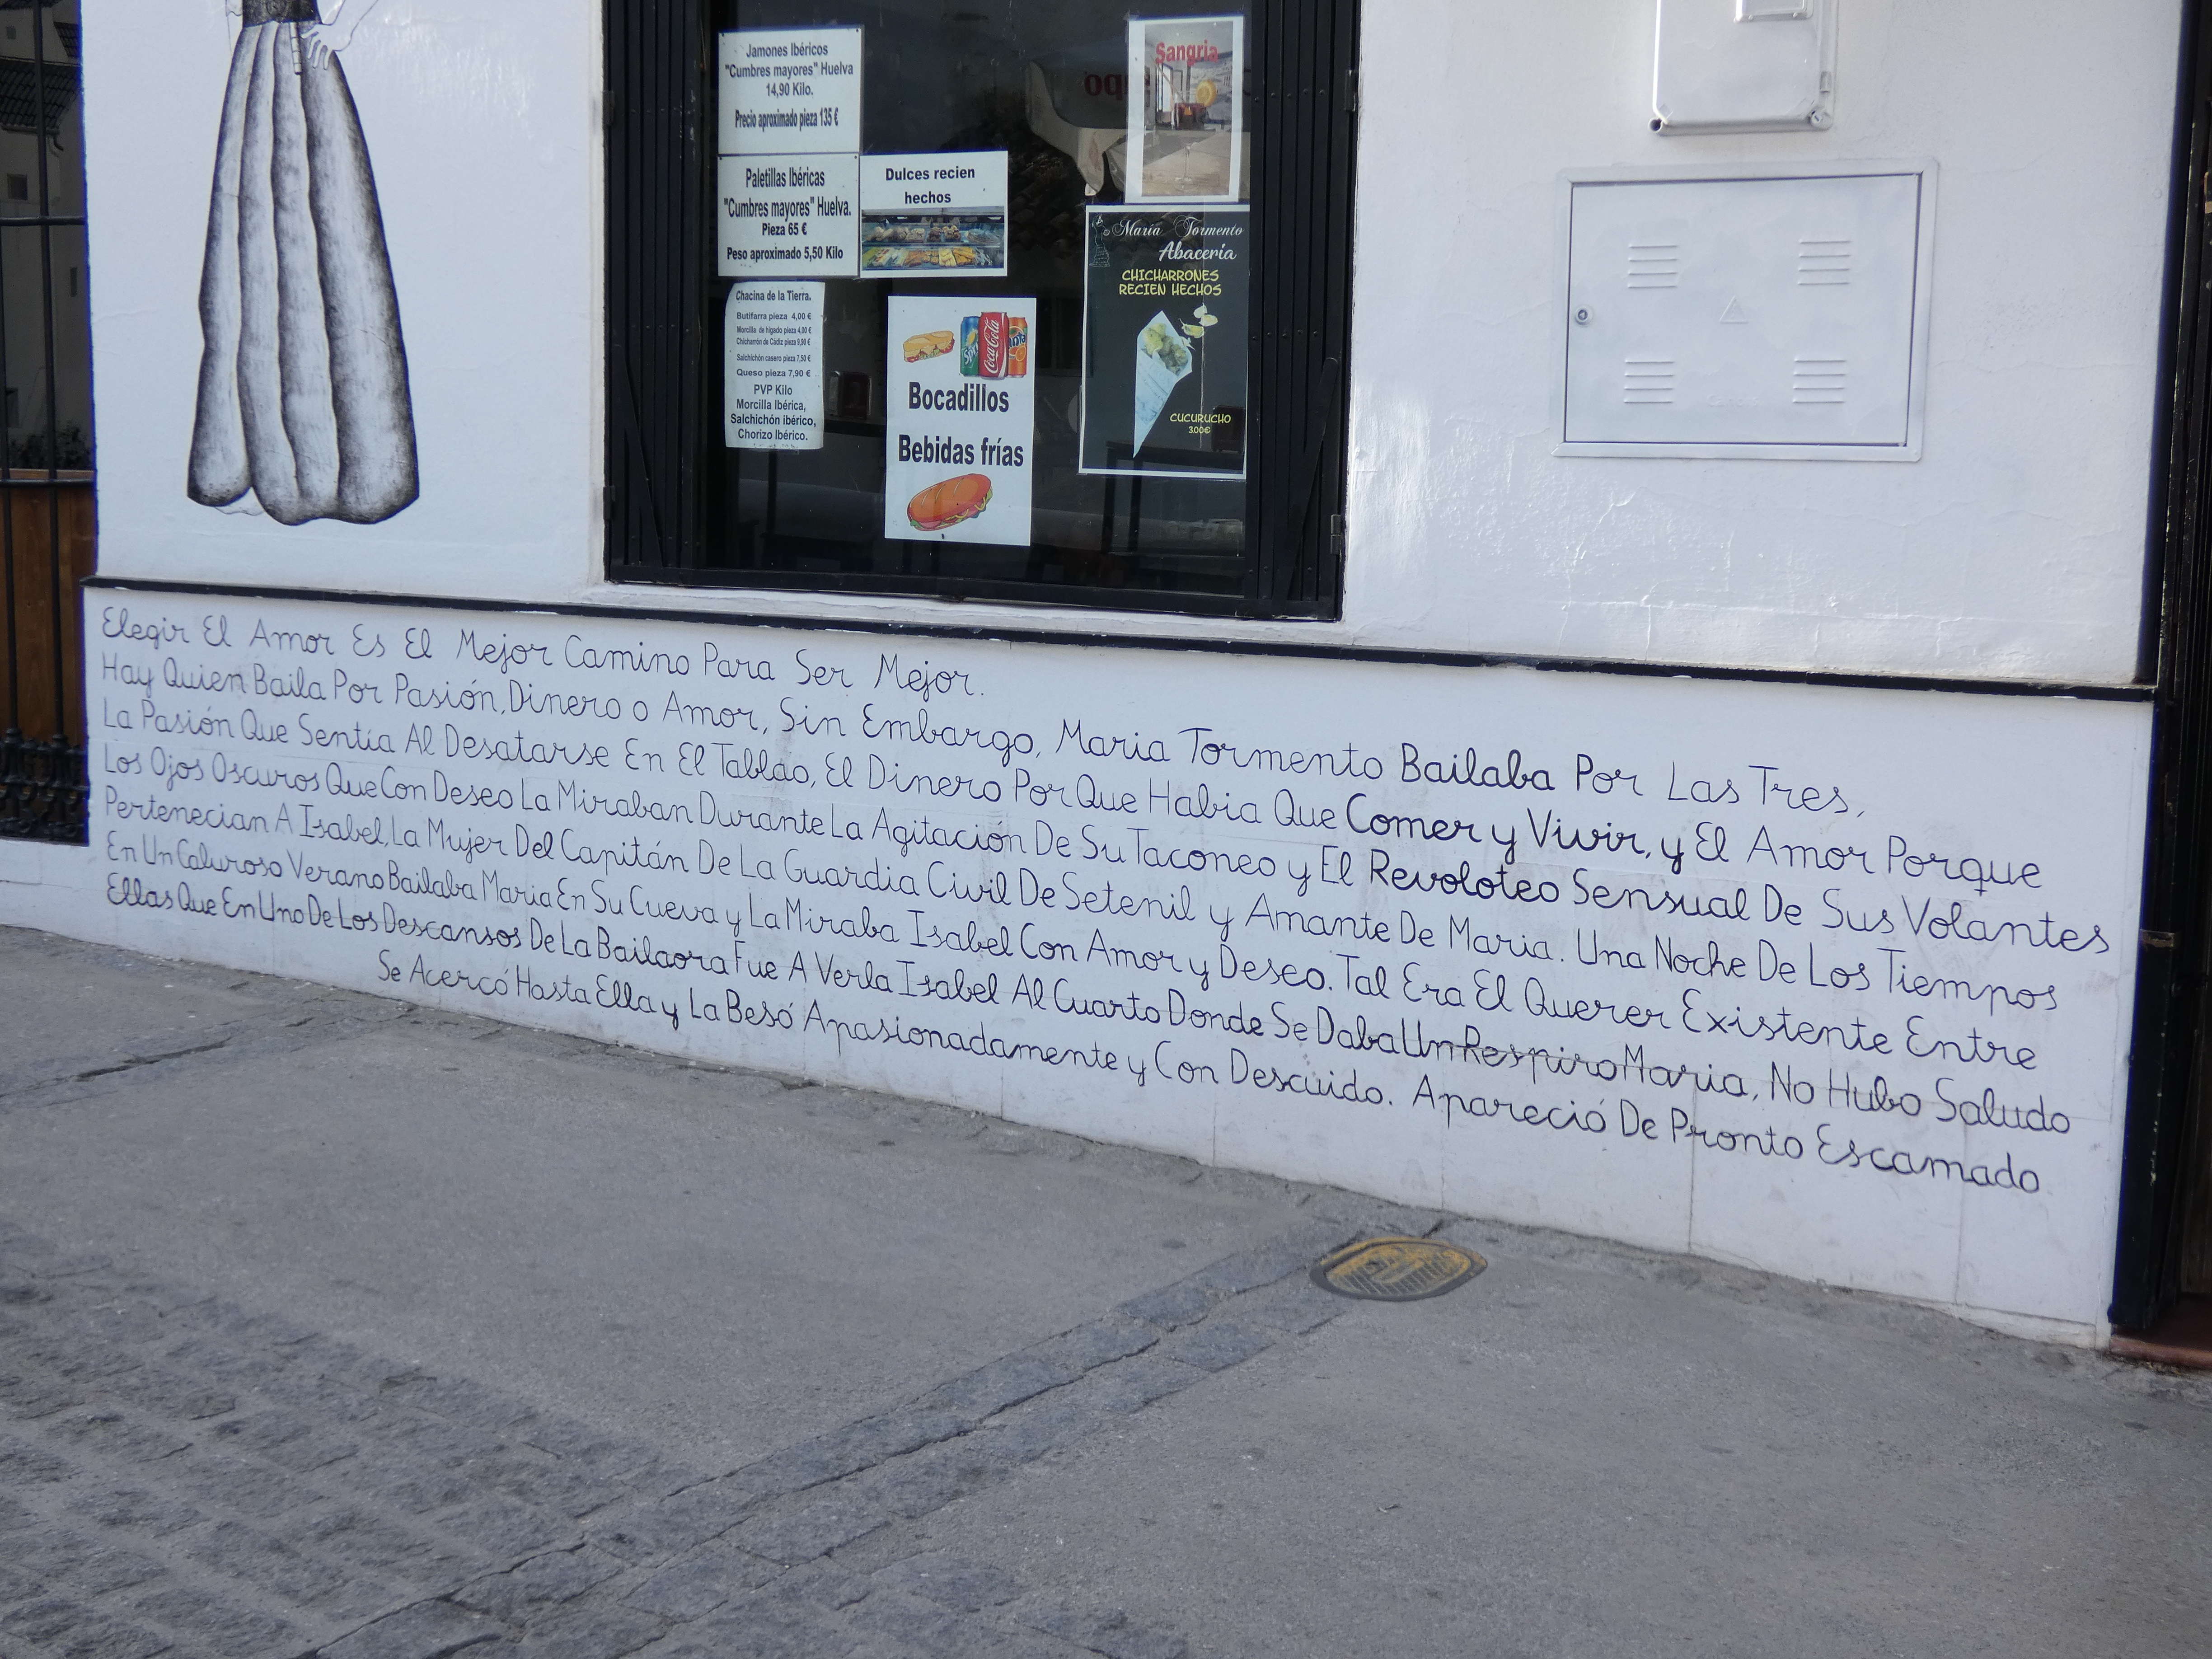 Jamones Ibéricos
"Cumbres mayores" Huelva
14,90 Kilo.
Precio aproximado pieza 135 €
Paletillas Ibéricas
"Cumbres mayores" Huelva.
Pieza 65 €
Peso aproximado 5,50 Kilo
Dulces recien
hechos
Chacina de la Tierra.
Butifarra pieza 4,00 €
Morcilla de hígado pieza 4,00 €
Chicharrón de Cádiz pieza 9,90 €
Salchichón casero pieza 7,50 €
Queso pieza 7,90 €
PVP Kilo
Morcilla Ibérica,
Salchichón ibérico,
Chorizo Ibérico.
Coca-Cola
Bocadillos
Bebidas frías
Sangria
María Tormento
Abacería
CHICHARRONES
RECIEN HECHOS
CUCURUCHO
3.00€
Elegir El Amor Es El Mejor Camino Para Ser Mejor.
Hay Quien Baila Por Pasión, Dinero o Amor, Sin Embargo, Maria Tormento Bailaba Por Las Tres,
La Pasión Que Sentía Al Desatarse En El Tablao, El Dinero Por Que Habia Que Comer y Vivir, y El Amor Porque
Los Ojos Oscuros Que Con Deseo La Miraban Durante La Agitación De Su Taconeo y El Revoloteo Sensual De Sus Volantes
Pertenecian A Isabel, La Mujer Del Capitán De La Guardia Civil De Setenil y Amante De Maria. Una Noche De Los Tiempos
En Un Caluroso Verano Bailaba Maria En Su Cueva y La Miraba Isabel Con Amor y Deseo. Tal Era El Querer Existente Entre
Ellas Que En Uno De Los Descansos De La Bailaora Fue A Verla Isabel Al Cuarto Donde Se Daba Un Respiro Maria, No Hubo Saludo
Se Acercó Hasta Ella y La Besó Apasionadamente y Con Descuido. Apareció De Pronto Escamado